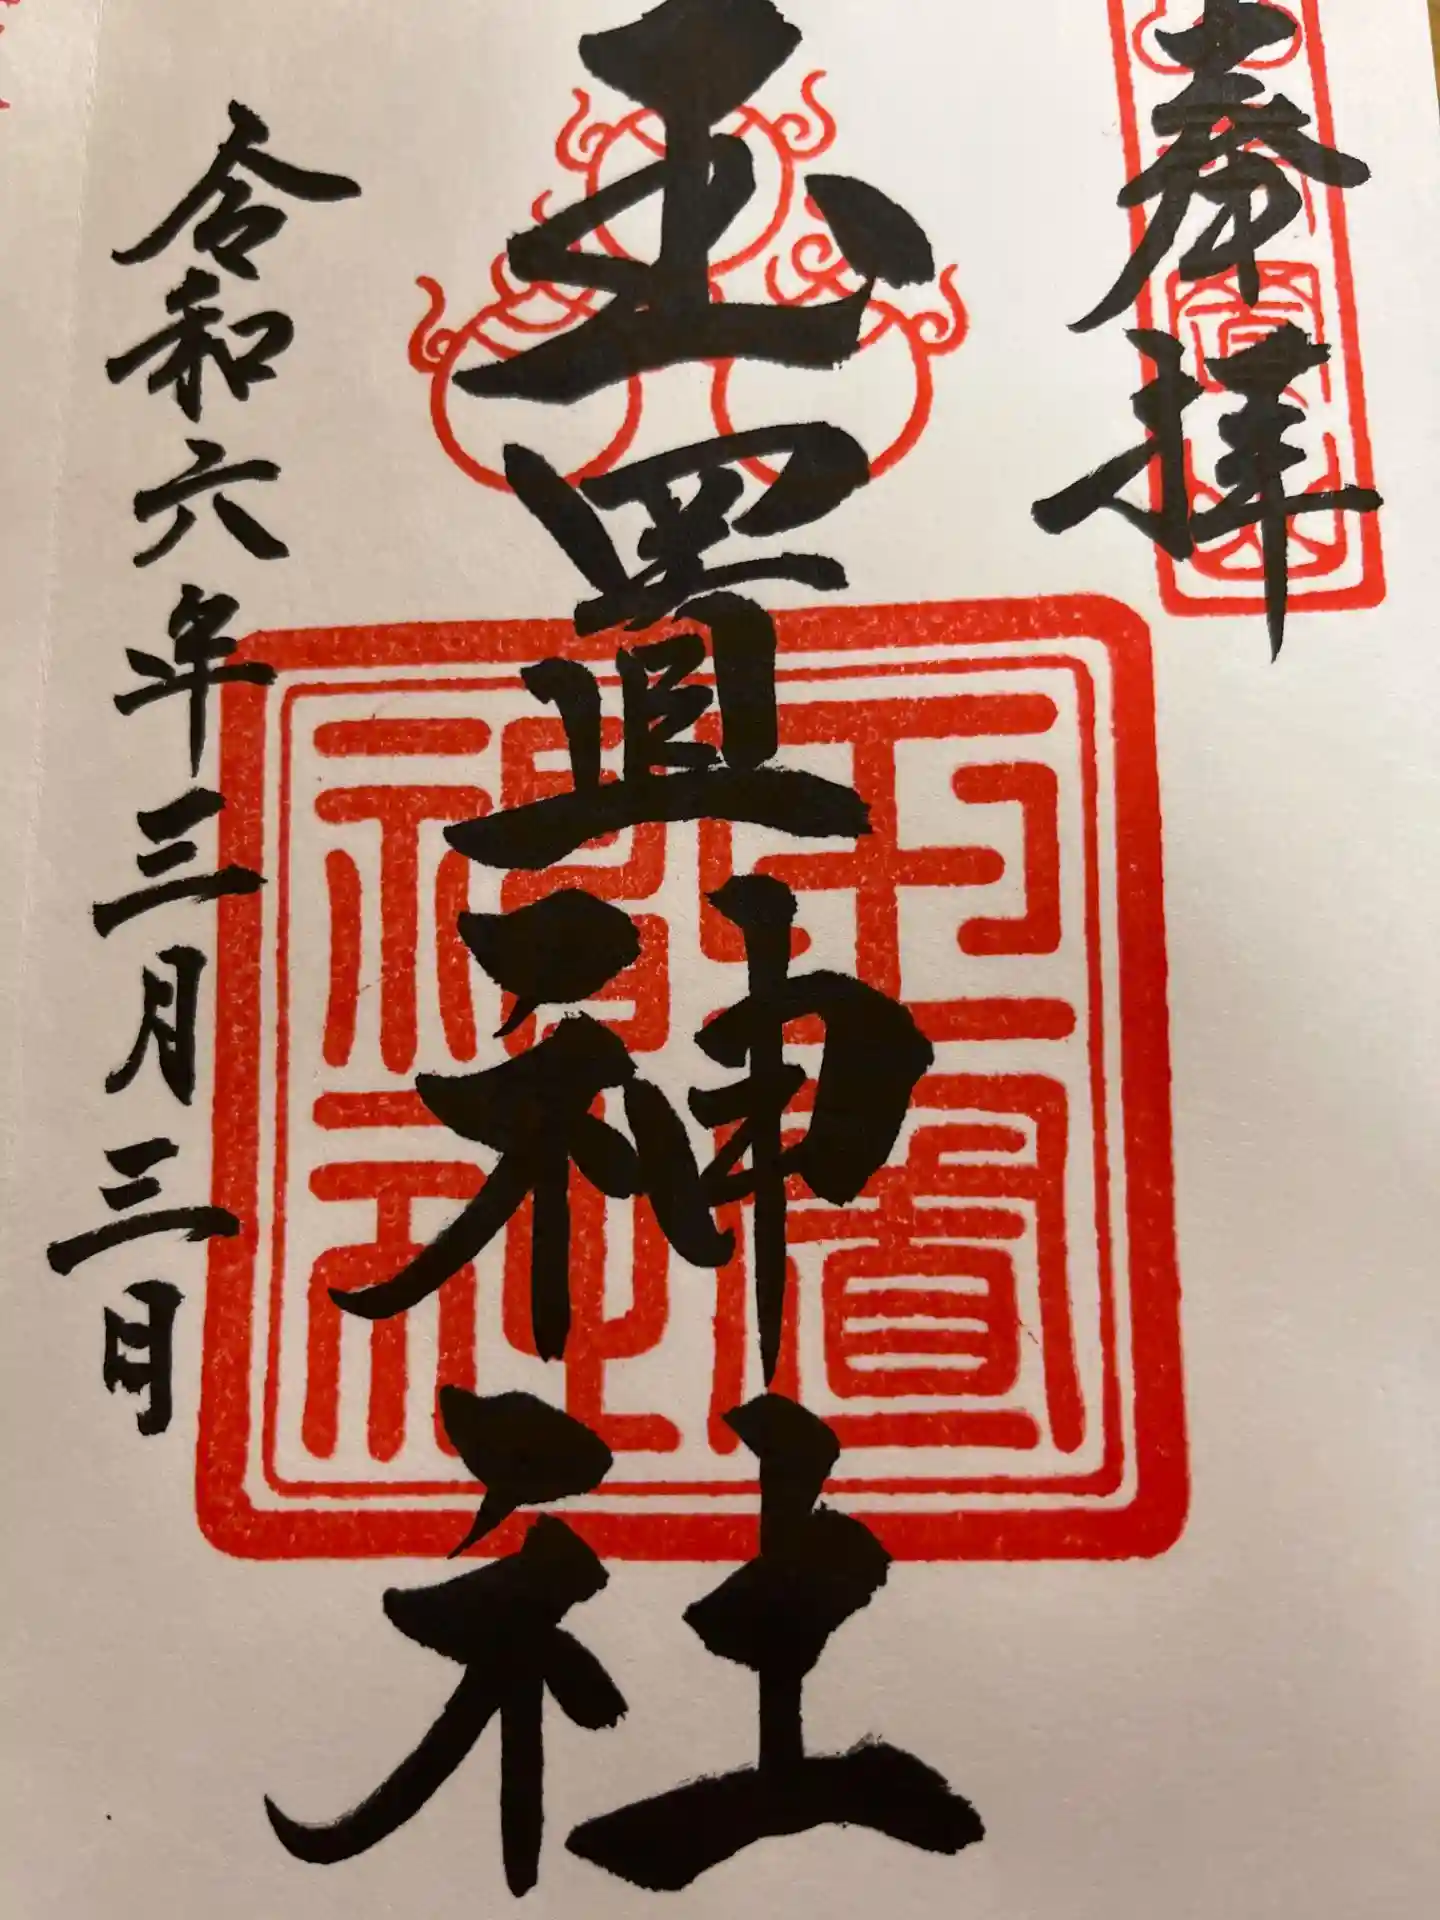 奉拝
玉置神社
令和六年三月三日
玉置
神社